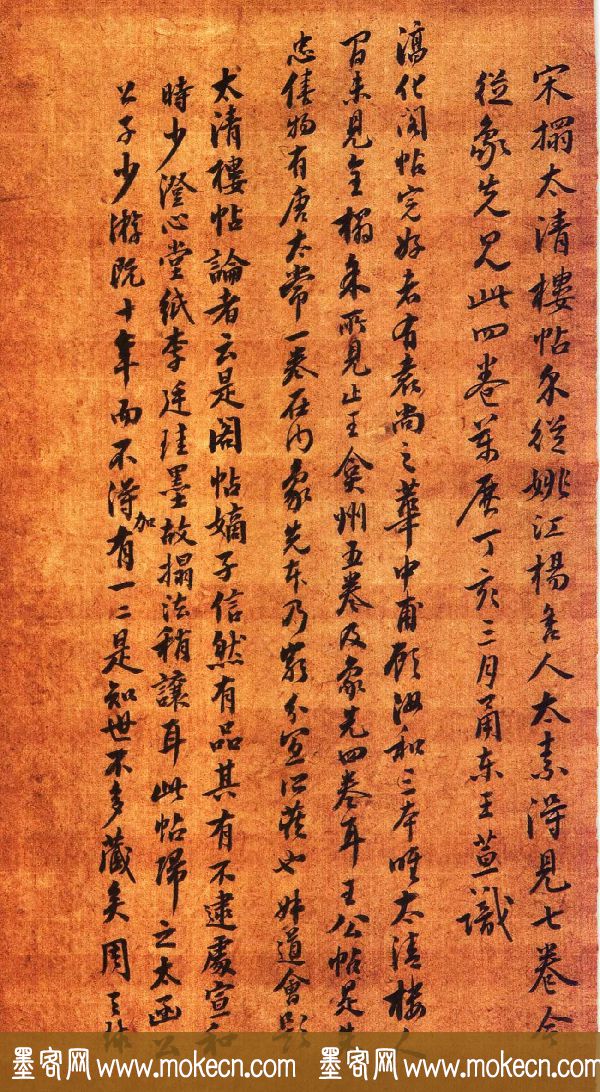 宋搨太清樓帖余從姚江楊舍人太素得見七卷今
從象先見此四卷萬曆丁亥三月甬東王萱識
淳化閣帖完好者有袁尚之華中甫顧汝和三本唯太清樓人
間未見全搨余所見止王弇州五卷及象先四卷耳王公帖是
忠僖物有唐太常一卷在內象先本乃分宜所藏也
太清樓帖論者云是閣帖嫡子信然有品其有不逮處宣和
時少澄心堂紙李廷珪墨故搨法稍讓耳此帖歸之太函
公子少游既十年而不得加有一二是知世不多藏矣周
墨客网 www.mokecn.com 墨客网 www.mokecn.com